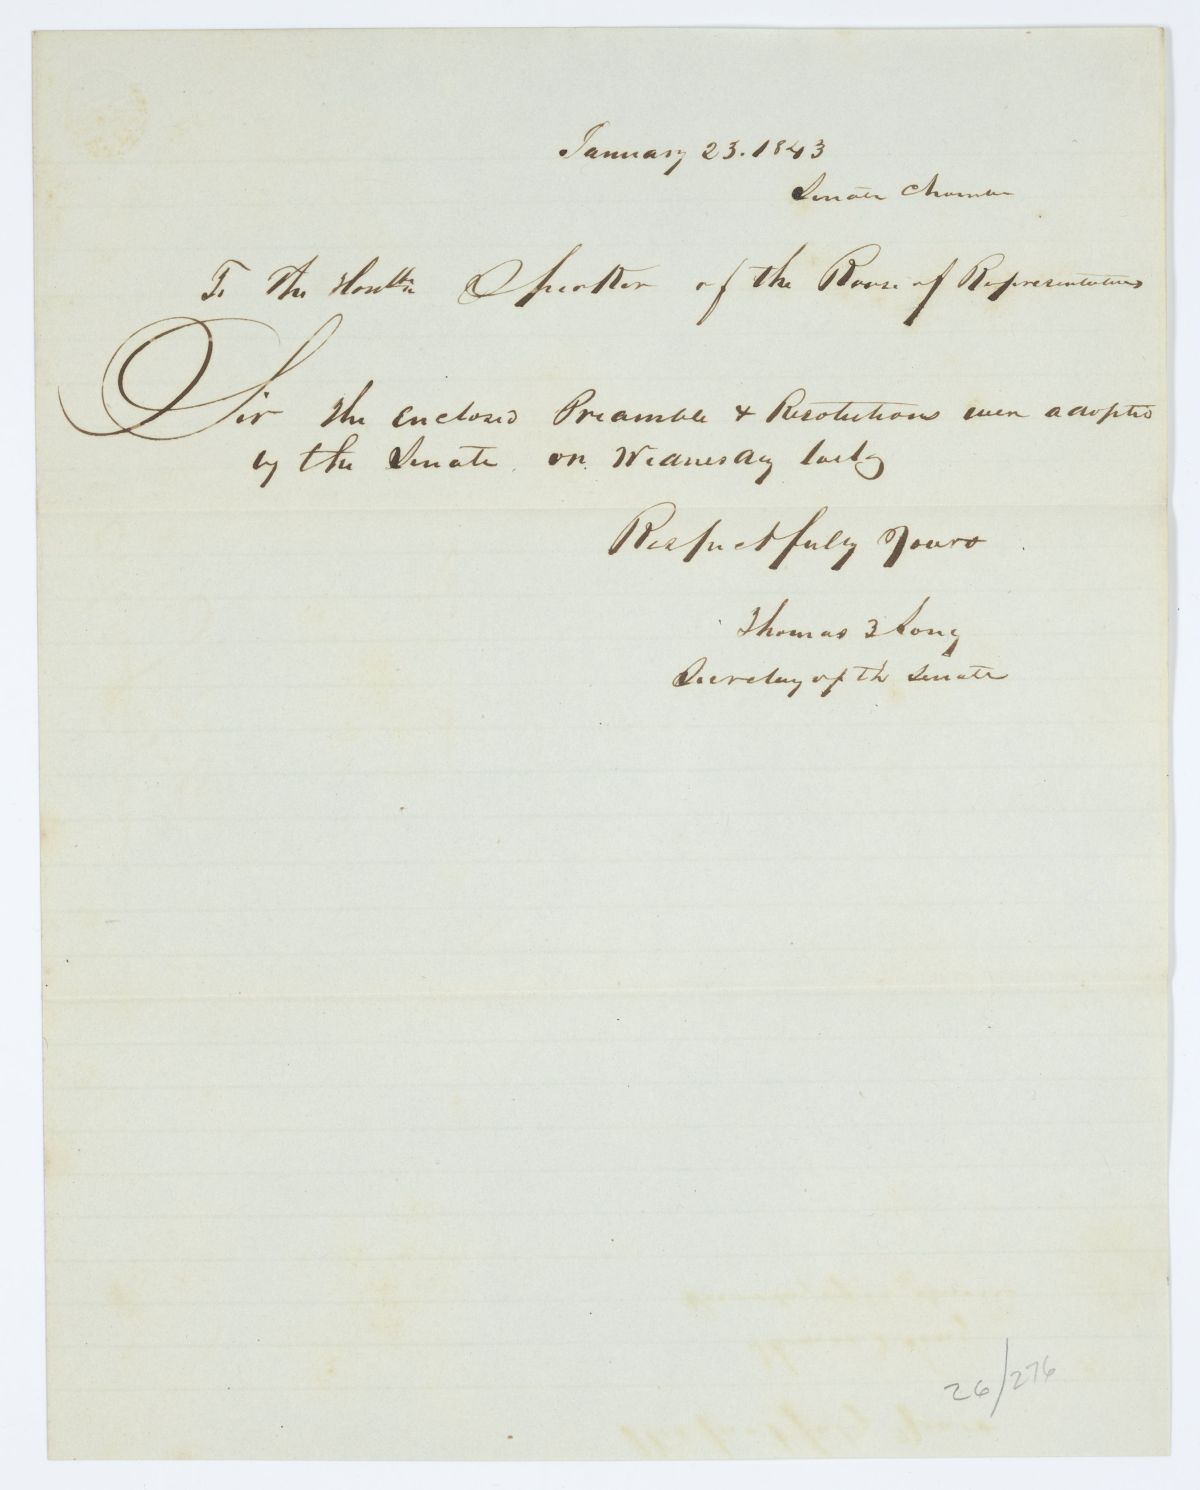 January 23. 1843
Senate Chamber
To the Honble Speaker of the House of Representatives
Sir the enclosed Preamble & Resolutions were adopted
by the Senate on Wednesday last
Respectfully Yours
Thomas Long
Secretary of the Senate
26/276